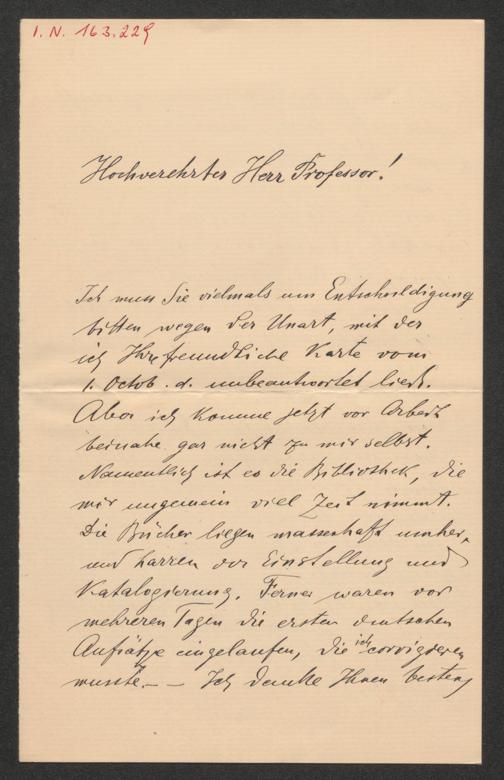 I. N. 163.229
Hochverehrter Herr Professor!
Ich muss Sie vielmals um Entschuldigung
bitten wegen der Unart, mit der
ich Ihre freundliche Karte vom
1. Octob. d. unbeantwortet liess.
Aber ich komme jetzt vor Arbeit
beinahe gar nicht zu mir selbst.
Namentlich ist es die Bibliothek, die
mir ungemein viel Zeit nimmt.
Die Bücher liegen massenhaft umher,
und harren der Einstellung und
Katalogisierung. Ferner waren vor
mehreren Tagen die ersten deutschen
Aufsätze eingelaufen, die ich corrigieren
musste. – – Ich danke Ihnen bestens